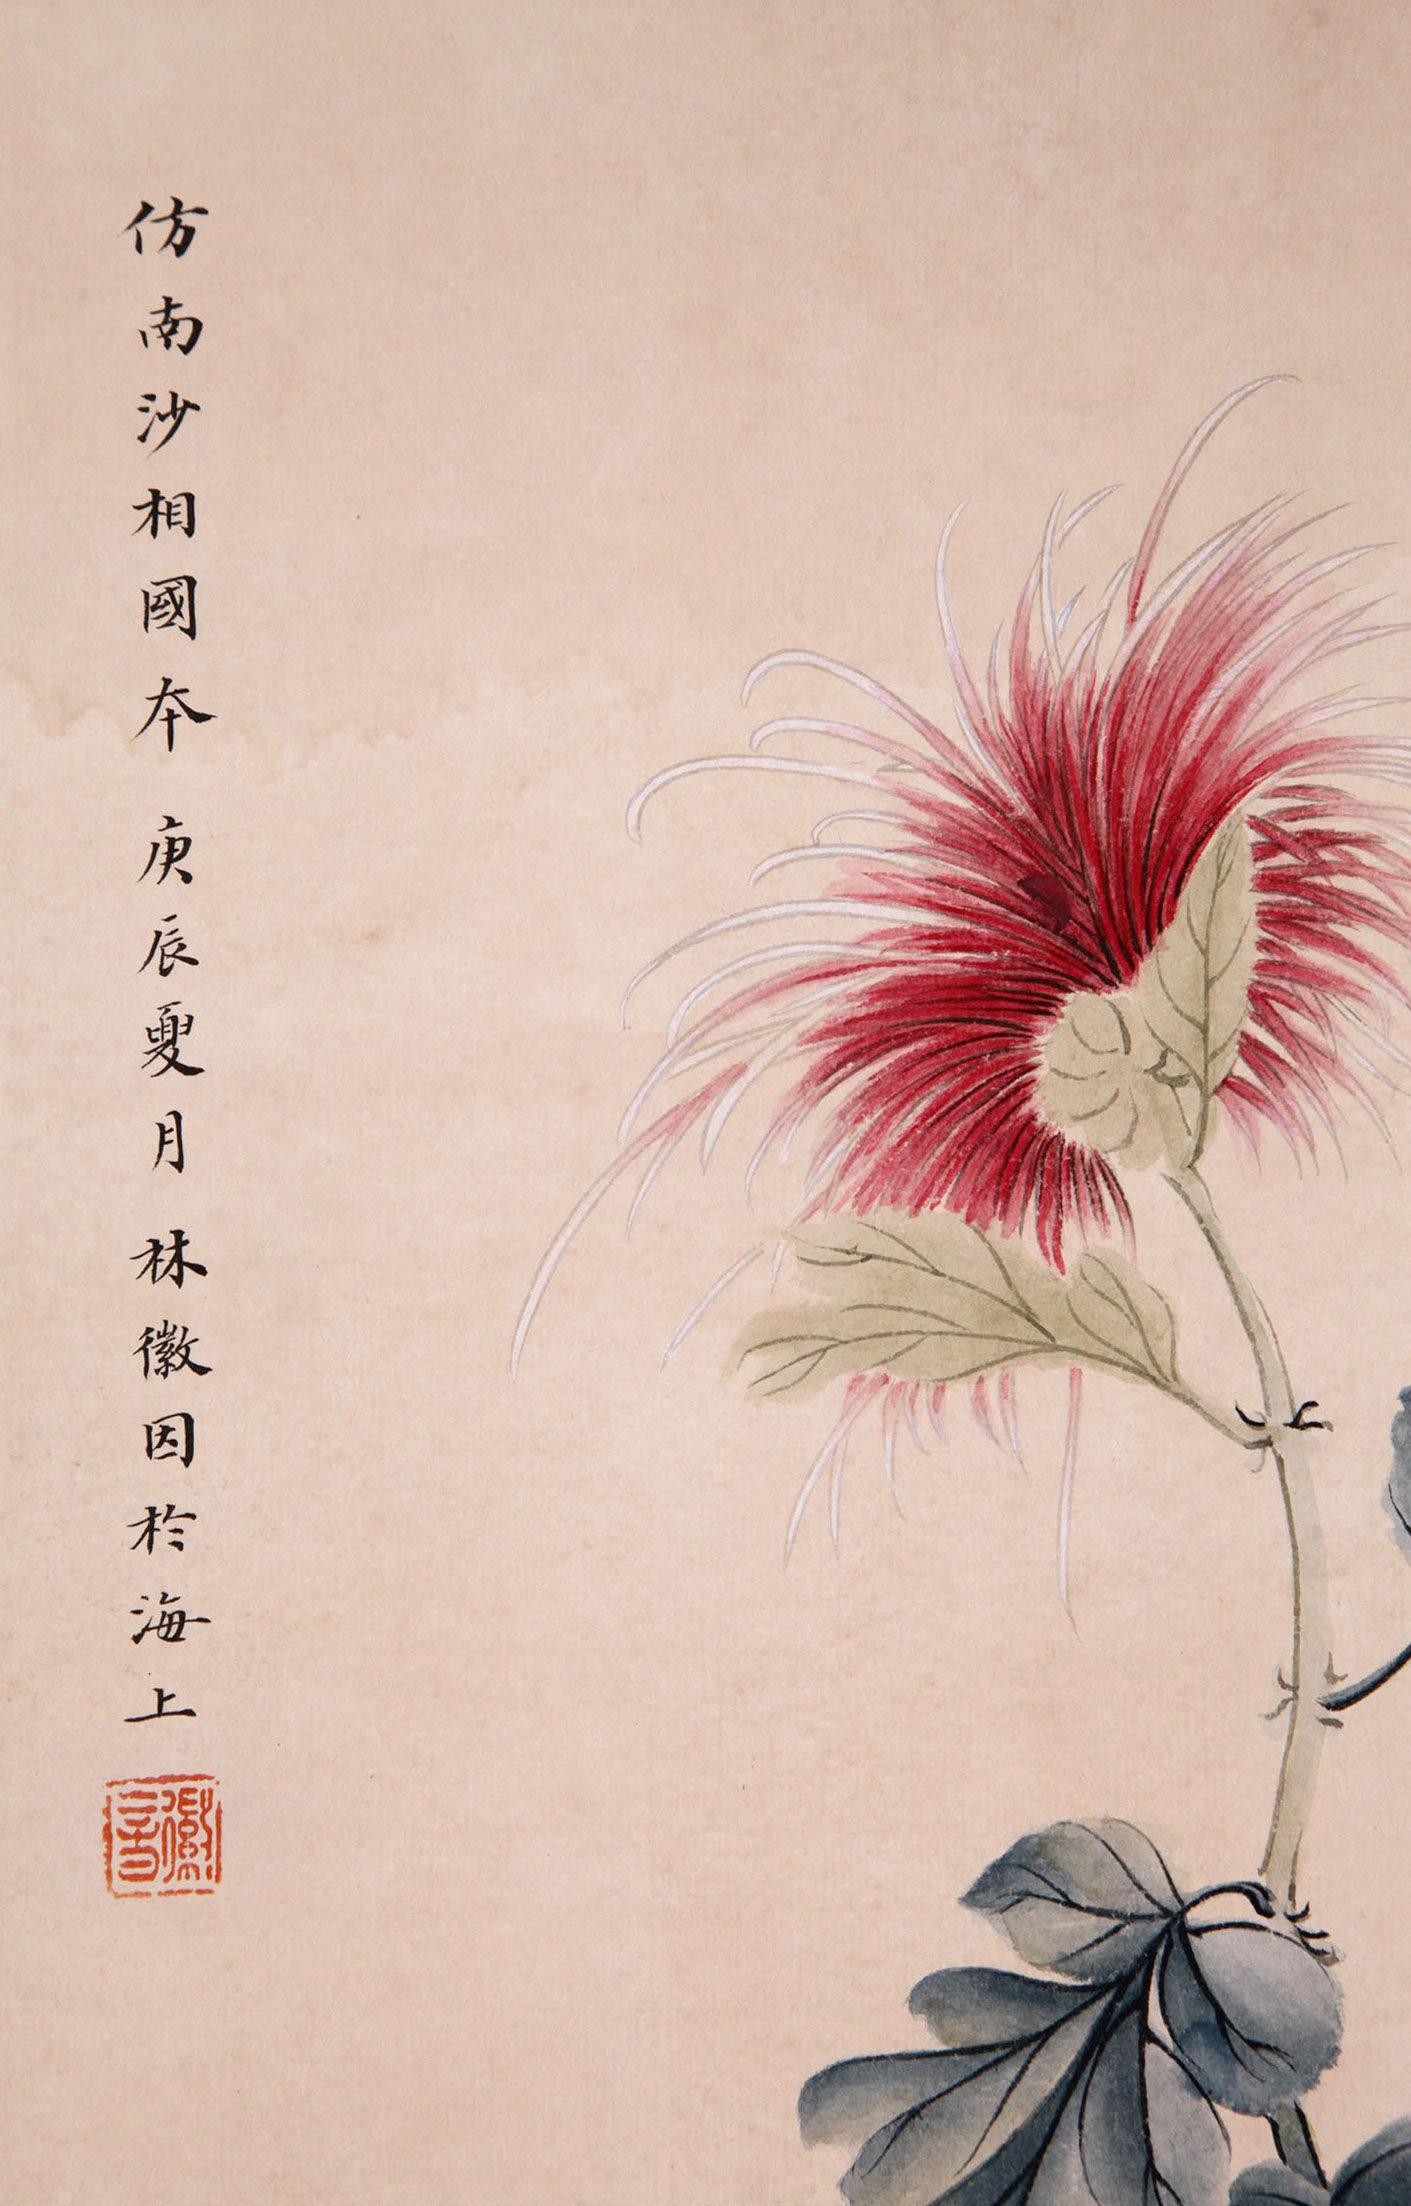 仿南沙相國本 庚辰夏月 林徽因於海上
徽音